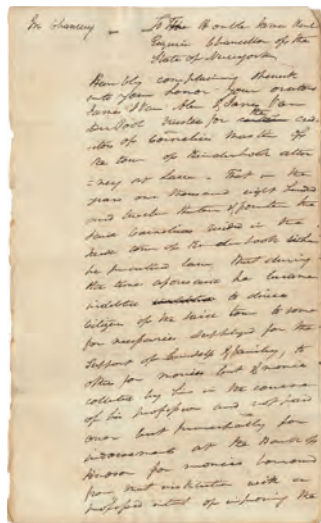 In Chancery - To The Honble James Kent
Esquire Chancellor of the
State of New york
Humbly complaining sheweth
unto your Honor your orators
James I Van Alen & James Van
trustees for the cred
itors of Cornelius of
the town of Kinderhook attor
=ney at Law - that in the
years one thousand eight hundred
and twelve thirteen & fourteen the
said Cornelius resided in the
said town of Kinderhook where
he practiced law that during
the time aforesaid he became
indebted to divers
citizens of the said town to some
for necessaries supplied for the
Support of himself & family, to
others for monies lent & monies
collected by him in the course
of his profession and not paid
over but principally for
indorsements at the Bank of
Hudson for monies borrowed
from that institution with a
professed intent of improving the